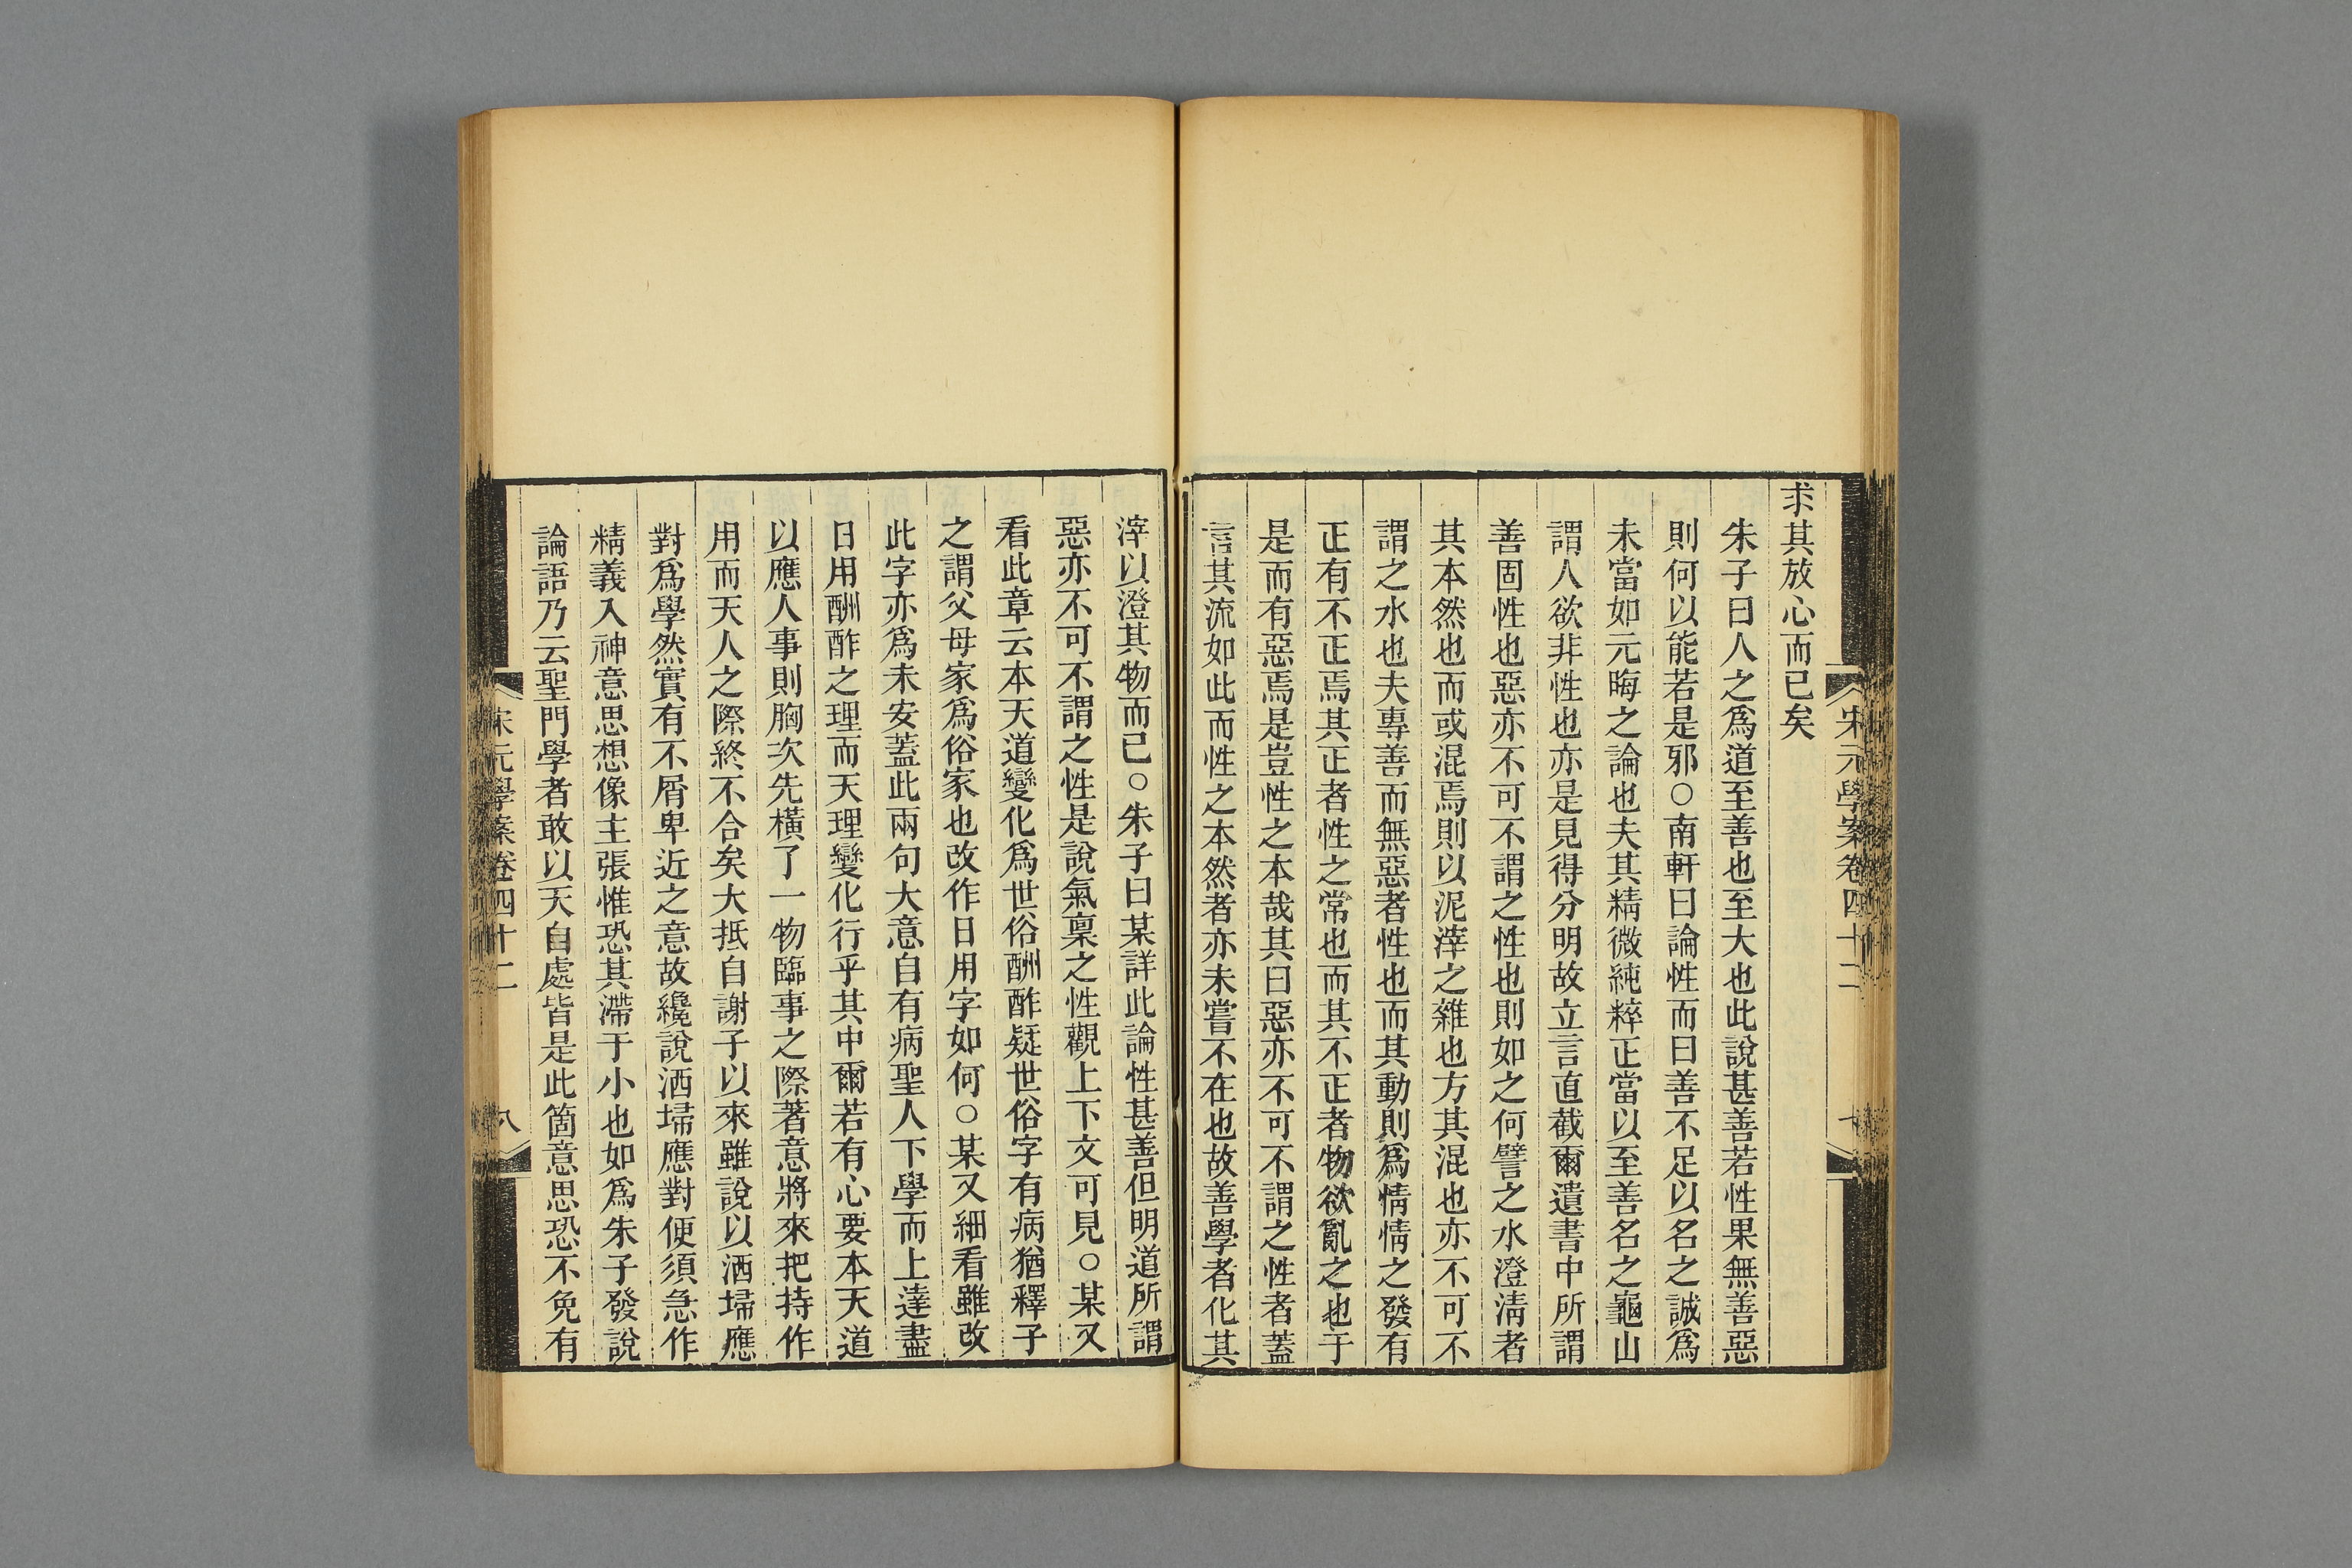 宋元學案卷四十二
求其放心而已矣
朱子曰人之爲道至善也至大也此說甚善若性果無善惡
則何以能若是邪○南軒曰論性而曰善不足以名之誠爲
未當如元晦之論也夫其精微純粹正當以至善名之龜山
謂人欲非性也亦是見得分明故立言直截爾遺書中所謂
善固性也惡亦不可不謂之性也則如之何譬之水澄淸者
其本然也而或混焉則以泥滓之雜也方其混也亦不可不
謂之水也夫專善而無惡者性也而其動則爲情情之發有
正有不正焉其正者性之常也而其不正者物欲亂之也于
是而有惡焉是豈性之本哉其曰惡亦不可不謂之性者蓋
言其流如此而性之本然者亦未嘗不在也故善學者化其
滓以澄其物而已○朱子曰某詳此論性甚善但明道所謂
惡亦不可不謂之性是說氣稟之性觀上下文可見○某又
看此章云本天道變化爲世俗酬酢疑世俗字有病猶釋子
之謂父母家爲俗家也改作日用字如何○某又細看雖改
此字亦爲未安蓋此兩句大意自有病聖人下學而上達盡
日用酬酢之理而天理變化行乎其中爾若有心要本天道
以應人事則胸次先橫了一物臨事之際著意將來把持作
用而天人之際終不合矣大抵自謝子以來雖說以洒埽應
對爲學然實有不屑卑近之意故纔說洒埽應對便須急作
精義入神意思想像主張惟恐其滯于小也如爲朱子發說
論語乃云聖門學者敢以天自處皆是此箇意思恐不免有
宋元學案卷四十二 八